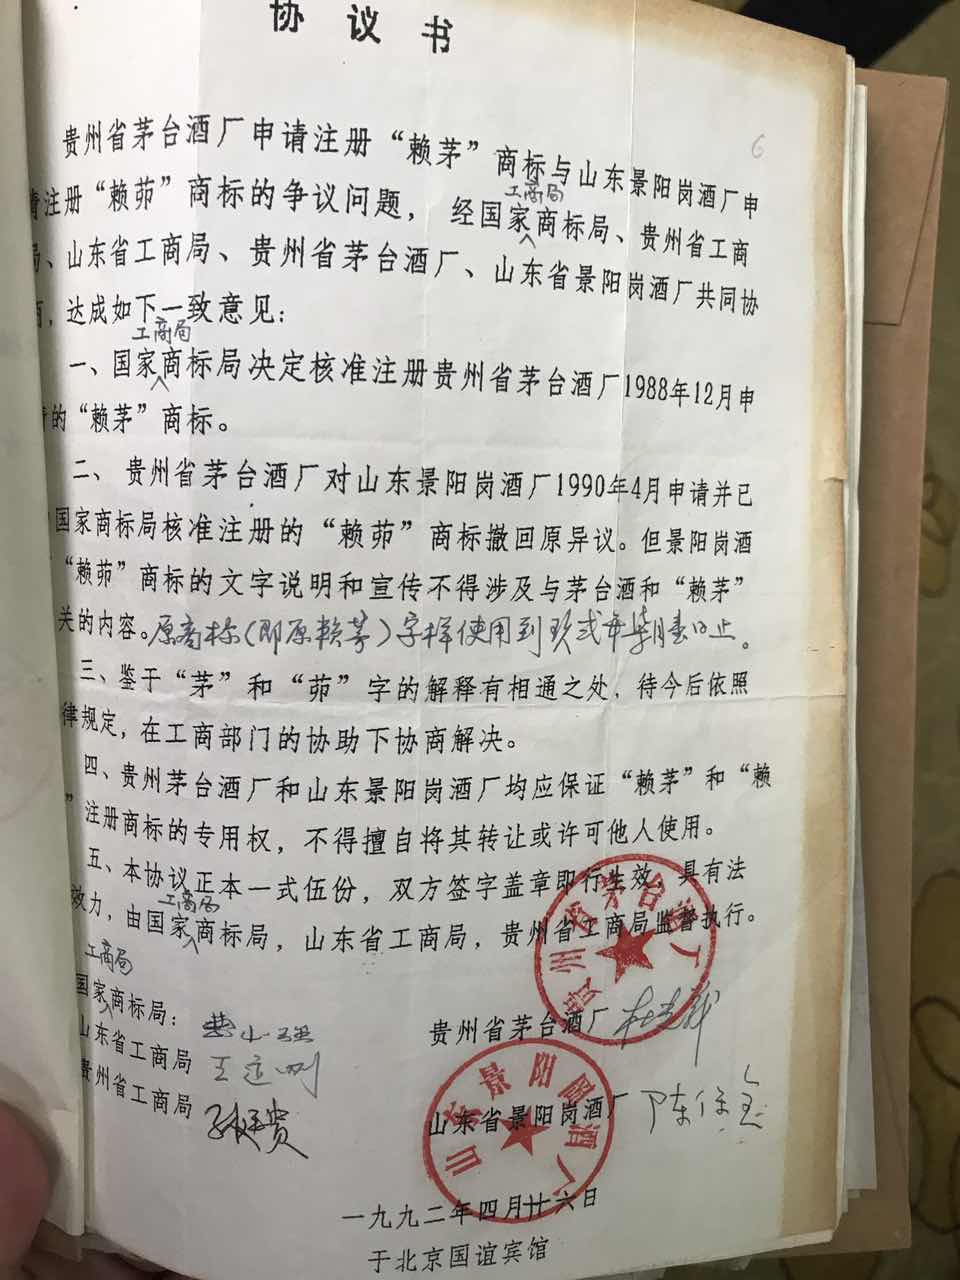 协议书
6
贵州省茅台酒厂申请注册“赖茅”商标与山东景阳岗酒厂申
请注册“赖茆”商标的争议问题，经国家工商局商标局、贵州省工商
局、山东省工商局、贵州省茅台酒厂、山东省景阳岗酒厂共同协
商，达成如下一致意见：
一、国家工商局商标局决定核准注册贵州省茅台酒厂1988年12月申
请的“赖茅”商标。
二、贵州省茅台酒厂对山东景阳岗酒厂1990年4月申请并已
国家商标局核准注册的“赖茆”商标撤回原异议。但景阳岗酒
“赖茆”商标的文字说明和宣传不得涉及与茅台酒和“赖茅”
关的内容。原商标（即原赖茅）字样使用到玖贰年柒月壹日止。
三、鉴于“茅”和“茆”字的解释有相通之处，待今后依照
律规定，在工商部门的协助下协商解决。
四、贵州茅台酒厂和山东景阳岗酒厂均应保证“赖茅”和“赖
”注册商标的专用权，不得擅自将其转让或许可他人使用。
五、本协议正本一式伍份，双方签字盖章即行生效，具有法
效力，由国家工商局商标局，山东省工商局，贵州省工商局监督执行。
国家工商局商标局：
山东省工商局
贵州省工商局
贵州省茅台酒厂
贵州省茅台酒厂
山东省景阳岗酒厂
山东景阳岗酒厂
一九九二年四月廿六日
于北京国谊宾馆